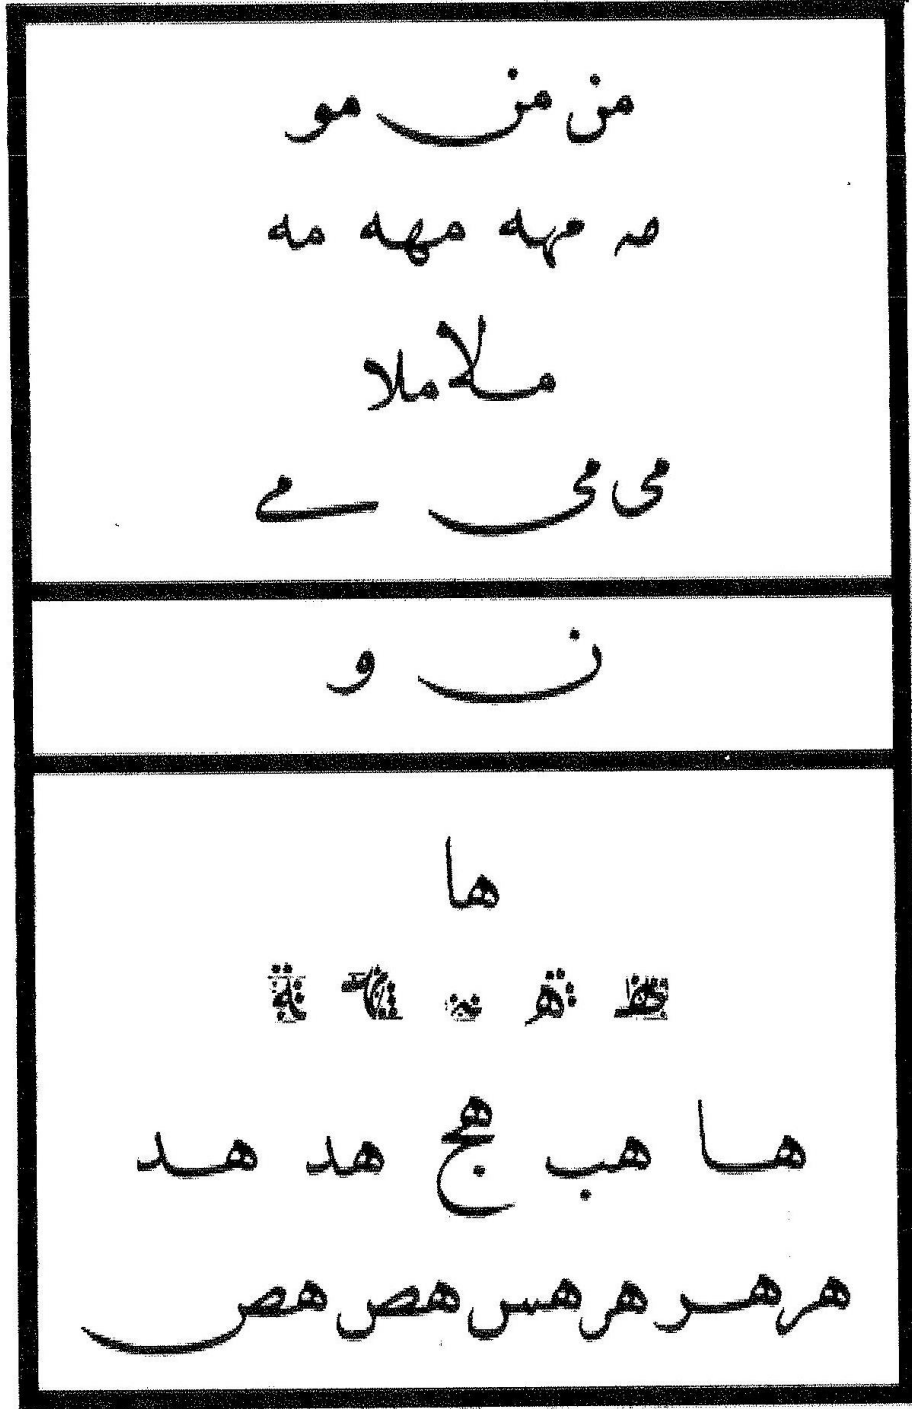 من من مو
مه مهه مهه مه
ملا ملا
مى مى مے
ن و
ها
ها هب هج هد هد
هر هر هر هس هص هص